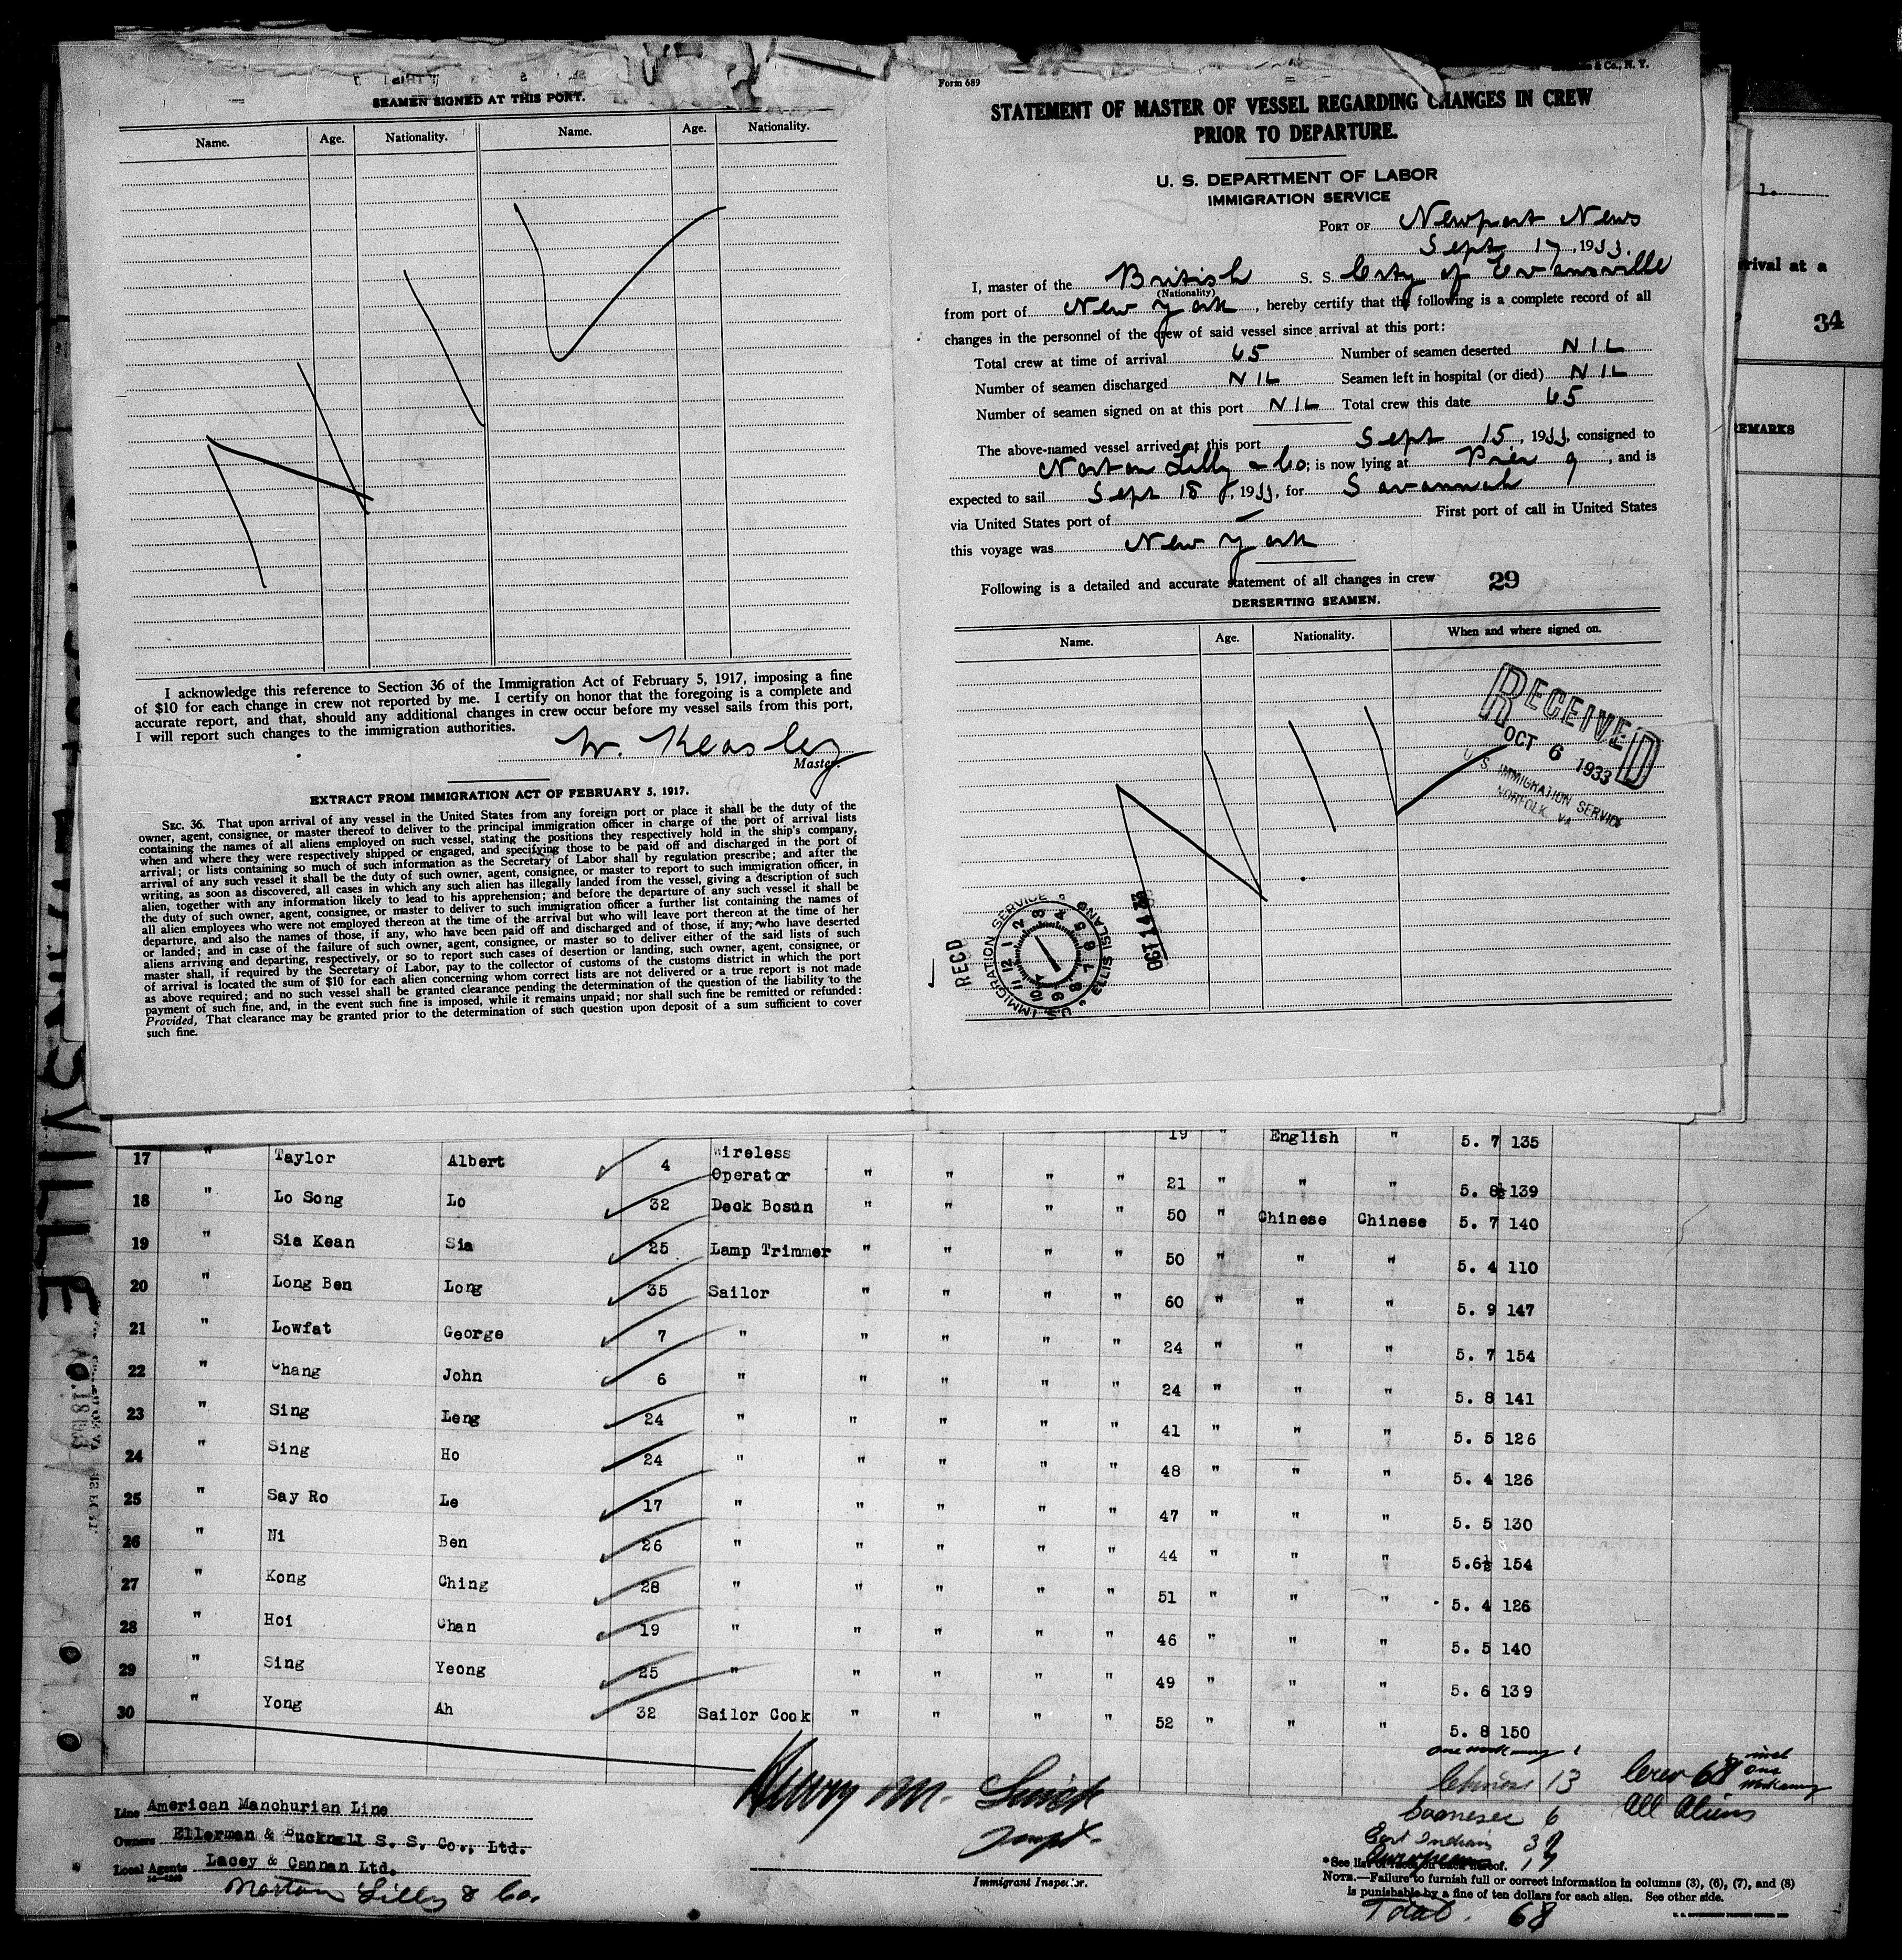 SEAMEN SIGNED AT THIS PORT.
Name. Age. Nationality. Name. Age. Nationality.
NIL
I acknowledge this reference to Section 36 of the Immigration Act of February 5, 1917, imposing a fine
of $10 for each change in crew not reported by me. I certify on honor that the foregoing is a complete and
accurate report, and that, should any additional changes in crew occur before my vessel sails from this port,
I will report such changes to the immigration authorities.
W. Keasley
Master.
EXTRACT FROM IMMIGRATION ACT OF FEBRUARY 5, 1917.
SEC. 36. That upon arrival of any vessel in the United States from any foreign port or place it shall be the duty of the
owner, agent, consignee, or master thereof to deliver to the principal immigration officer in charge of the port of arrival lists
containing the names of all aliens employed on such vessel, stating the positions they respectively hold in the ship's company,
when and where they were respectively shipped or engaged, and specifying those to be paid off and discharged in the port of
arrival; or lists containing so much of such information as the Secretary of Labor shall by regulation prescribe; and after the
arrival of any such vessel it shall be the duty of such owner, agent, consignee, or master to report to such immigration officer, in
writing, as soon as discovered, all cases in which any such alien has illegally landed from the vessel, giving a description of such
alien, together with any information likely to lead to his apprehension; and before the departure of any such vessel it shall be
the duty of such owner, agent, consignee, or master to deliver to such immigration officer a further list containing the names of
all alien employees who were not employed thereon at the time of the arrival but who will leave port thereon at the time of her
departure, and also the names of those, if any, who have been paid off and discharged and of those, if any, who have deserted
or landed; and in case of the failure of such owner, agent, consignee, or master so to deliver either of the said lists of such
aliens arriving and departing, respectively, or so to report such cases of desertion or landing, such owner, agent, consignee, or
master shall, if required by the Secretary of Labor, pay to the collector of customs of the customs district in which the port
of arrival is located the sum of $10 for each alien concerning whom correct lists are not delivered or a true report is not made
as above required; and no such vessel shall be granted clearance pending the determination of the question of the liability to the
payment of such fine, and, in the event such fine is imposed, while it remains unpaid; nor shall such fine be remitted or refunded:
Provided, That clearance may be granted prior to the determination of such question upon deposit of a sum sufficient to cover
such fine.
Form 689
& Co., N. Y.
STATEMENT OF MASTER OF VESSEL REGARDING CHANGES IN CREW
PRIOR TO DEPARTURE.
U. S. DEPARTMENT OF LABOR
IMMIGRATION SERVICE
PORT OF Newport News
Sept 17, 1933.
I, master of the British S. S. City of Evansville
(Nationality)
from port of New York, hereby certify that the following is a complete record of all
changes in the personnel of the crew of said vessel since arrival at this port:
Total crew at time of arrival 65 Number of seamen deserted NIL
Number of seamen discharged NIL Seamen left in hospital (or died) NIL
Number of seamen signed on at this port NIL Total crew this date 65
The above-named vessel arrived at this port Sept 15, 1933, consigned to
Norton Lilly & Co; is now lying at Pier 9, and is
expected to sail Sept 18, 1933, for Savannah
via United States port of — First port of call in United States
this voyage was New York
Following is a detailed and accurate statement of all changes in crew 29
DERSERTING SEAMEN.
Name. Age. Nationality. When and where signed on.
NIL
RECEIVED
OCT 6 1933
U. S. IMMIGRATION SERVICE
NORFOLK, VA
RECD
U.S. IMMIGRATION SERVICE ELLIS ISLAND
OCT 14 33
1.
rival at a
34
REMARKS
VILLE
19 " English " 5. 7 135
17 " Taylor Albert 4 Wireless
Operator " " " " 21 " " " 5. 8½ 139
18 " Lo Song Lo 32 Deck Bosun " " " " 50 " Chinese Chinese 5. 7 140
19 " Sia Kean Sia 25 Lamp Trimmer " " " " 50 " " " 5. 4 110
20 " Long Ben Long 35 Sailor " " " " 60 " " " 5. 9 147
21 " Lowfat George 7 " " " " " 24 " " " 5. 7 154
22 " Chang John 6 " " " " " 24 " " " 5. 8 141
23 " Sing Leng 24 " " " " " 41 " " " 5. 5 126
24 " Sing Ho 24 " " " " " 48 " " " 5. 4 126
25 " Say Ro Le 17 " " " " " 47 " " " 5. 5 130
26 " Ni Ben 26 " " " " " 44 " " " 5.6½ 154
27 " Kong Ching 28 " " " " " 51 " " " 5. 4 126
28 " Hoi Chan 19 " " " " " 46 " " " 5. 5 140
29 " Sing Yeong 25 " " " " " 49 " " " 5. 6 139
30 " Yong Ah 32 Sailor Cook " " " " 52 " " " 5. 8 150
one workaway 1
Chinese 13
Crew 68 incl
one
workaway
All Aliens
Goanese 6
East Indians 39
Line American Manchurian Line
Owners Ellerman & Bucknall S. S. Co., Ltd.
Local Agents Lacey & Cannan Ltd.
Norton Lilly & Co.
Henry M.
Immigrant Inspector.
*See list of races on back hereof.
NOTE.—Failure to furnish full or correct information in columns (3), (6), (7), and (8)
is punishable by a fine of ten dollars for each alien. See other side.
Total. 68